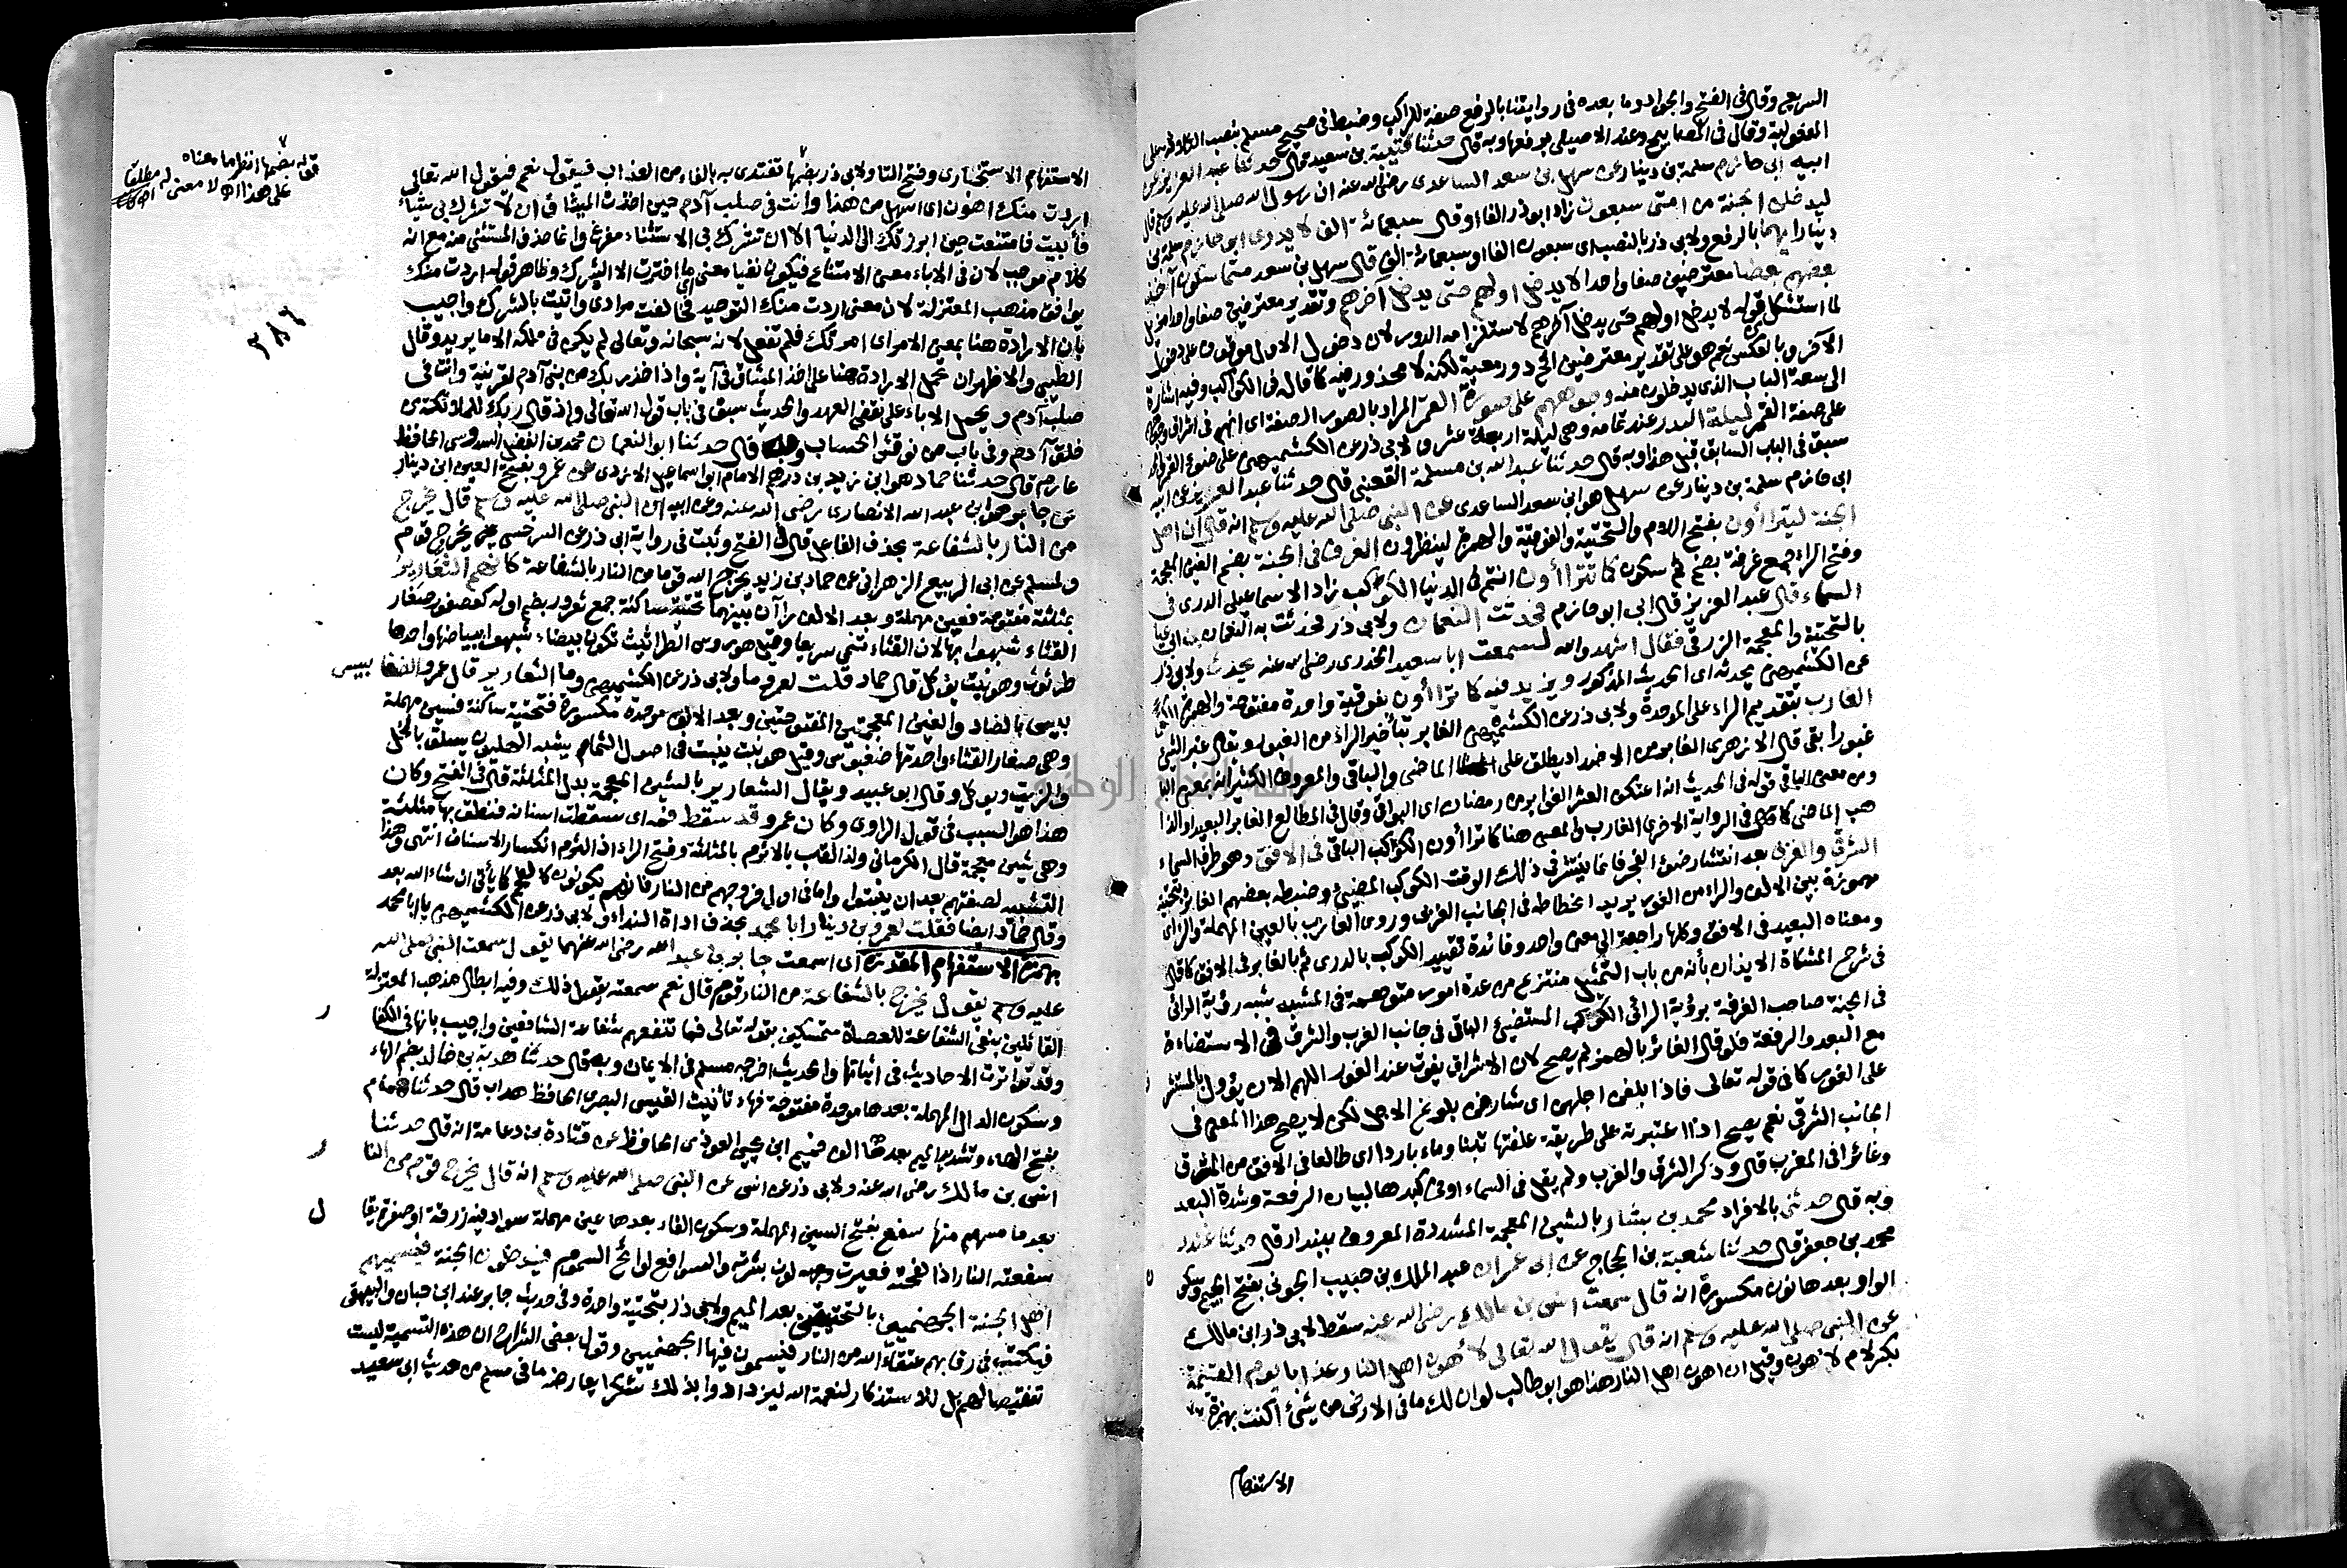 السريع وقال في الفتح والجواد وما بعده في روايتنا بالرفع صفة للراكب وضبط في صحيح مسلم بنصب الثلاثة على
المفعولية وقال في المصابيح وعند الاصيلي برفعها وبه قال حدثنا قتيبة بن سعيد قال حدثنا عبد العزيز عن
ابيه ابي حازم سلمة بن دينار عن سهل بن سعد الساعدي رضي الله عنه ان رسول الله صلى الله عليه وسلم قال
ليدخلن الجنة من امتي سبعون زاد ابو ذر الفا او قال سبعمائة الف لا يدري ابو حازم سلمة بن
دينار ايهما بالرفع ولابي ذر بالنصب اي سبعون الفا او سبعمائة الف قال سهل بن سعد متماسكون آخذ
بعضهم بعضا معترضين صفا واحدا لا يدخل اولهم حتى يدخل آخرهم وتقدير معترضين صفا واحدا مزيل
لما استشكل قوله لا يدخل اولهم حتى يدخل آخرهم لاستلزامه الدور لان دخول الاول موقوف على دخول
الآخر وبالعكس نعم هو على تقدير معترضين الخ دور معية لكنه لا محذور فيه كما قاله في الكواكب وفيه اشارة
الى سعة الباب الذي يدخلون منه وجوههم على صورة القمر المراد بالصورة الصفة اي انهم في اشراق وجوههم
على صفة القمر ليلة البدر عند تمامه وهي ليلة اربعة عشر ولابي ذر عن الكشميهني على ضوء القمر
سبق في الباب السابق قبل هذا وبه قال حدثنا عبد الله بن مسلمة القعنبي قال حدثنا عبد العزيز عن ابيه
ابي حازم سلمة بن دينار عن سهل هو ابن سعد الساعدي عن النبي صلى الله عليه وسلم انه قال ان اهل
الجنة ليتراأون بفتح اللام والتحتية والفوقية والهمزة لينظرون الغرف في الجنة بضم الغين المعجمة
وفتح الراء جمع غرفة بضم ثم سكون كما تتراأون انتم في الدنيا الكوكب زاد الاسماعيلي الدري في
السماء قال عبد العزيز قال ابي ابو حازم فحدثت النعمان ولابي ذر فحدثت به النعمان بن ابي عياش
بالتحتية والمعجمة الزرقي فقال اشهد والله لسمعت ابا سعيد الخدري رضي الله عنه يحدث ولابي ذر
عن الكشميهني يحدثه اي الحديث المذكور ويزيد فيه كما تراأون بفوقية واحدة مفتوحة والهمزة
الغارب بتقديم الراء على الموحدة ولابي ذر عن الكشميهني الغابر بتأخير الراء من الغبور وتقال غبر الشئ
غبورا بقي قال الازهري الغابر من الاضداد يطلق على الماضي والباقي والمعروف الكثير انه بمعنى الباقي
ومن معنى الباقي قوله في الحديث انه اعتكف العشر الغوابر من رمضان اي البواقي وقال في المطالع الغابر البعيد او الذا
هب الماضي كما في الرواية الاخرى الغارب والمعنى هنا كما تراأون الكوكب الباقي في الافق وهو طرف السماء
الشرقي والغربي بعد انتشار ضوء الفجر فانما ينتشر في ذلك الوقت الكوكب المضيئ وضبطه بعضهم الغاير بتحتية
مهموزة بين الالف والراء من الغور يريد انحطاطه في الجانب الغربي وروي العازب بالعين المهملة والزاي
ومعناه البعيد في الافق وكلها راجعة الى معنى واحد وفائدة تقييد الكوكب بالدري ثم بالغابر في الافق كما قال
في شرح المشكاة الايذان بأنه من باب التمثيل منتزع من عدة امور متوهمة في المشبه شبه رؤية الرائي
في الجنة صاحب الغرفة برؤية الرائي الكوكب المستضيئ الباقي في جانب الغرب والشرق في الاستضاءة
مع البعد والرفعة فلو قال الغائر بالهمز لم يصح لان الاشراق يفوت عند الغور اللهم الا ان يؤول بالمستشر
على الغور كما في قوله تعالى فاذا بلغن اجلهن اي شارفن بلوغ الاجل لكن لا يصح هذا المعنى في
الجانب الشرقي نعم يصح اذا اعتبرته على طريقة علفتها تبنا وماء باردا اي طالعا في الافق من المشرق
وغائرا في المغرب قال وذكر الشرق والغرب ولم يقل في السماء او في كبدها لبيان الرفعة وشدة البعد
وبه قال حدثني بالافراد محمد بن بشار بالشين المعجمة المشددة المعروف ببندار قال حدثنا غندر
محمد بن جعفر قال حدثنا شعبة بن الحجاج عن ابي عمران عبد الملك بن حبيب الجوني بفتح الجيم وسكون
الواو بعدها نون مكسورة انه قال سمعت انس بن مالك رضي الله عنه سقط لابي ذر ابن مالك
عن النبي صلى الله عليه وسلم انه قال يقول الله تعالى لأهون اهل النار عذابا يوم القيمة
بكسر لام لاهون وقيل ان اهون اهل النار هذا هو ابو طالب لو ان لك ما في الارض من شئ اكنت بهمزة
الاستفهام
الاستفهام الاستخباري وفتح التا ولابي ذر بضمها تفتدي به بالفاء من العذاب فيقول نعم فيقول الله تعالى
اردت منك اهون اي اسهل من هذا وانت في صلب آدم حين اخذت الميثاق ان لا تشرك بي شيئا
فأبيت فامتنعت حين ابرزتك الى الدنيا الا ان تشرك بي الاستثناء مفرغ وانما حذف المستثنى منه مع انه
كلام موجب لان في الاباء معنى الامتناع فيكون نفيا معنى اي ما اخترت الا الشرك وظاهر قوله اردت منك
يوافق مذهب المعتزلة لان معنى اردت منك التوحيد فخالفت مرادي واتيت بالشرك واجيب
بان الارادة هنا بمعنى الامر اي امرتك فلم تفعل لانه سبحانه وتعالى لم يكن في ملكه الا ما يريد وقال
الطيبي والاظهر ان تحمل الارادة هنا على اخذ الميثاق في آية واذ اخذ ربك من بني آدم لقرينة وانت في
صلب آدم ويحمل الاباء على نقض العهد والحديث سبق في باب قول الله تعالى واذ قال ربك للملائكة في
خلق آدم وفي باب من نوقش الحساب وبه قال حدثنا ابو النعمان محمد بن الفضل السدوسي الحافظ
عارم قال حدثنا حماد هو ابن زيد بن درهم الامام ابو اسماعيل الازدي عن عمرو بفتح العين ابن دينار
عن جابر هو ابن عبد الله الانصاري رضي الله عنه وعن ابيه ان النبي صلى الله عليه وسلم قال يخرج
من النار بالشفاعة بحذف الفاعل قال في الفتح وثبت في رواية ابي ذر عن السرخسي يخرج قوم
ولمسلم عن ابي الربيع الزهراني عن حماد بن زيد يخرج الله قوما من النار بالشفاعة كانهم الثعارير
بمثلثة مفتوحة فعين مهملة وبعد الالف راآن بينهما تحتية ساكنة جمع ثعرور بضم اوله كعصفور صغار
القثاء شبهوا بها لان القثاء تنمي سريعا وقيل هو رءوس الطراثيث تكون بيضاء شبهوا ببياضها واحدها
طرثوث وهو نبت يؤكل قال حماد قلت لعمرو ما ولابي ذر عن الكشميهني وما الثعارير قال عمرو الضغا بيس
بيس بالضاد والغين المعجمتين المفتوحتين وبعد الالف موحدة مكسورة فتحتية ساكنة فسين مهملة
وهي صغار القثاء واحدتها ضغبوس وقيل هو نبت ينبت في اصول الثمام يشبه الهليون يسلق بالخل
والزيت ويؤكل وقال ابو عبيد ويقال الشعارير بالشين المعجمة بدل المثلثة قال في الفتح وكان
هذا هو السبب في قول الراوي وكان عمرو قد سقط فمه اي سقطت اسنانه فنطق بها مثلثة
وهي شين معجمة قال الكرماني ولذا لقب بالاثرم بالمثلثة وفتح الراء اذ الثرم انكسار الاسنان انتهى وهذا
التشبيه لصفتهم بعد ان ينبتوا واما في اول خروجهم من النار فانهم يكونون كالفحم كما يأتي ان شاء الله بعد
وقال حماد ايضا فقلت لعمرو بن دينار ابا محمد بحذف اداة النداء ولابي ذر عن الكشميهني يا ابا محمد
بهمزة الاستفهام المقدرة اي اسمعت جابر بن عبد الله رضي الله عنهما يقول سمعت النبي صلى الله
عليه وسلم يقول يخرج بالشفاعة من النار قوم قال نعم سمعته يقول ذلك وفيه ابطال مذهب المعتزلة
القائلين بنفي الشفاعة للعصاة متمسكين بقوله تعالى فما تنفعهم شفاعة الشافعين واجيب بانها في الكفا ر
وقد تواترت الاحاديث في اثباتها والحديث اخرجه مسلم في الايمان وبه قال حدثنا هدبة بن خالد بضم الهاء
وسكون الدال المهملة بعدها موحدة مفتوحة فهاء تأنيث القيسي البصري الحافظ هداب قال حدثنا همام
بفتح الهاء وتشديد الميم بعدها الف فميم ابن يحيى العوذي الحافظ عن قتادة بن دعامة انه قال حدثنا
انس بن مالك رضي الله عنه ولابي ذر عن انس عن النبي صلى الله عليه وسلم انه قال يخرج قوم من النا ر
بعد ما مسهم منها سفع بفتح السين المهملة وسكون الفاء بعدها عين مهملة سواد فيه زرقة او صفرة يقا ل
سفعته النار اذا لفحته فغيرت وجهه لون بشرته والسوافع لوافح السموم فيدخلون الجنة فيسميهم
اهل الجنة الجهنميين بالتحتيتين بعد الميم ولابي ذر بتحتية واحدة وفي حديث جابر عند ابن حبان والبيهقي
فيكتب في رقابهم عتقاء الله من النار فيسمون فيها الجهنميين وقول بعض الشراح ان هذه التسمية ليست
تنقيصا لهم بل للاستذكار لنعمة الله ليزدادوا بذلك شكرا يعارضه ما في مسلم من حديث ابي سعيد
قوله بضمها انظر ما معناه
على هذا اهـ لا معنى له مطلقا
٣٨٦